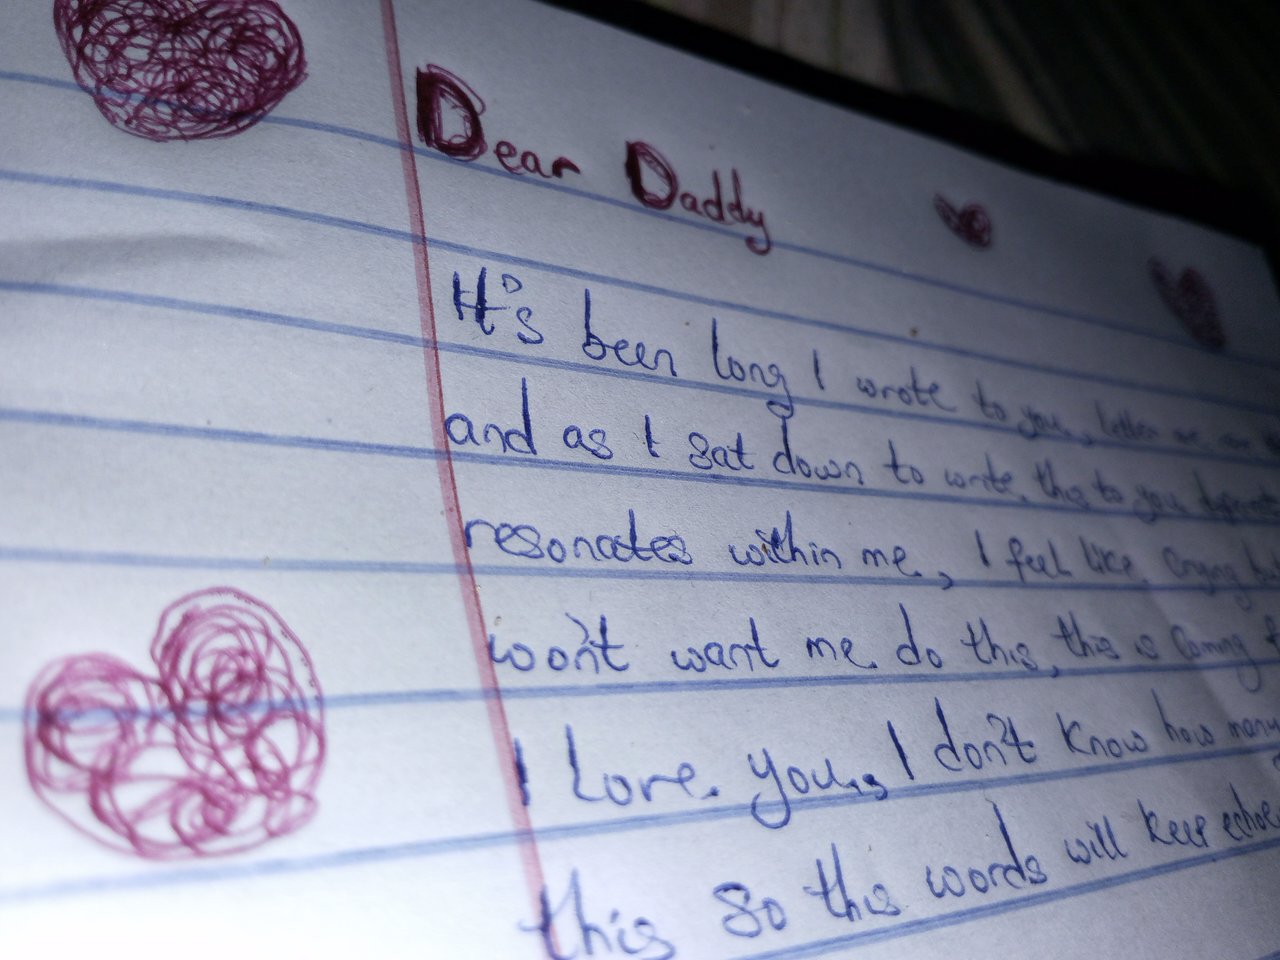 Dear Daddy
It's been long I wrote to you, letter me
and as I sat down to write this to you
resonates within me, I feel like crying
won't want me do this, this is coming
I Love you, I don't know how many
this so this words will keep echoe